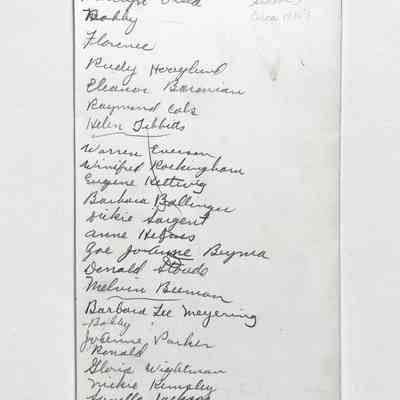 Bobby
Florence
Rudy Hoaglund
Eleanor Baronian
Raymond Cobs
Helen Tibbitts
Warren Everson
Winifred Rockingham
Eugene Kettwig
Barbara Ballinger
Dickie Sargent
Anne
Zoe Joanne Beyma
Donald
Melvin Beeman
Barbara Lee Meyering
Bobby
JoAnne Parker
Ronald
Gloria Wightman
Mickie Kempley
Jackson